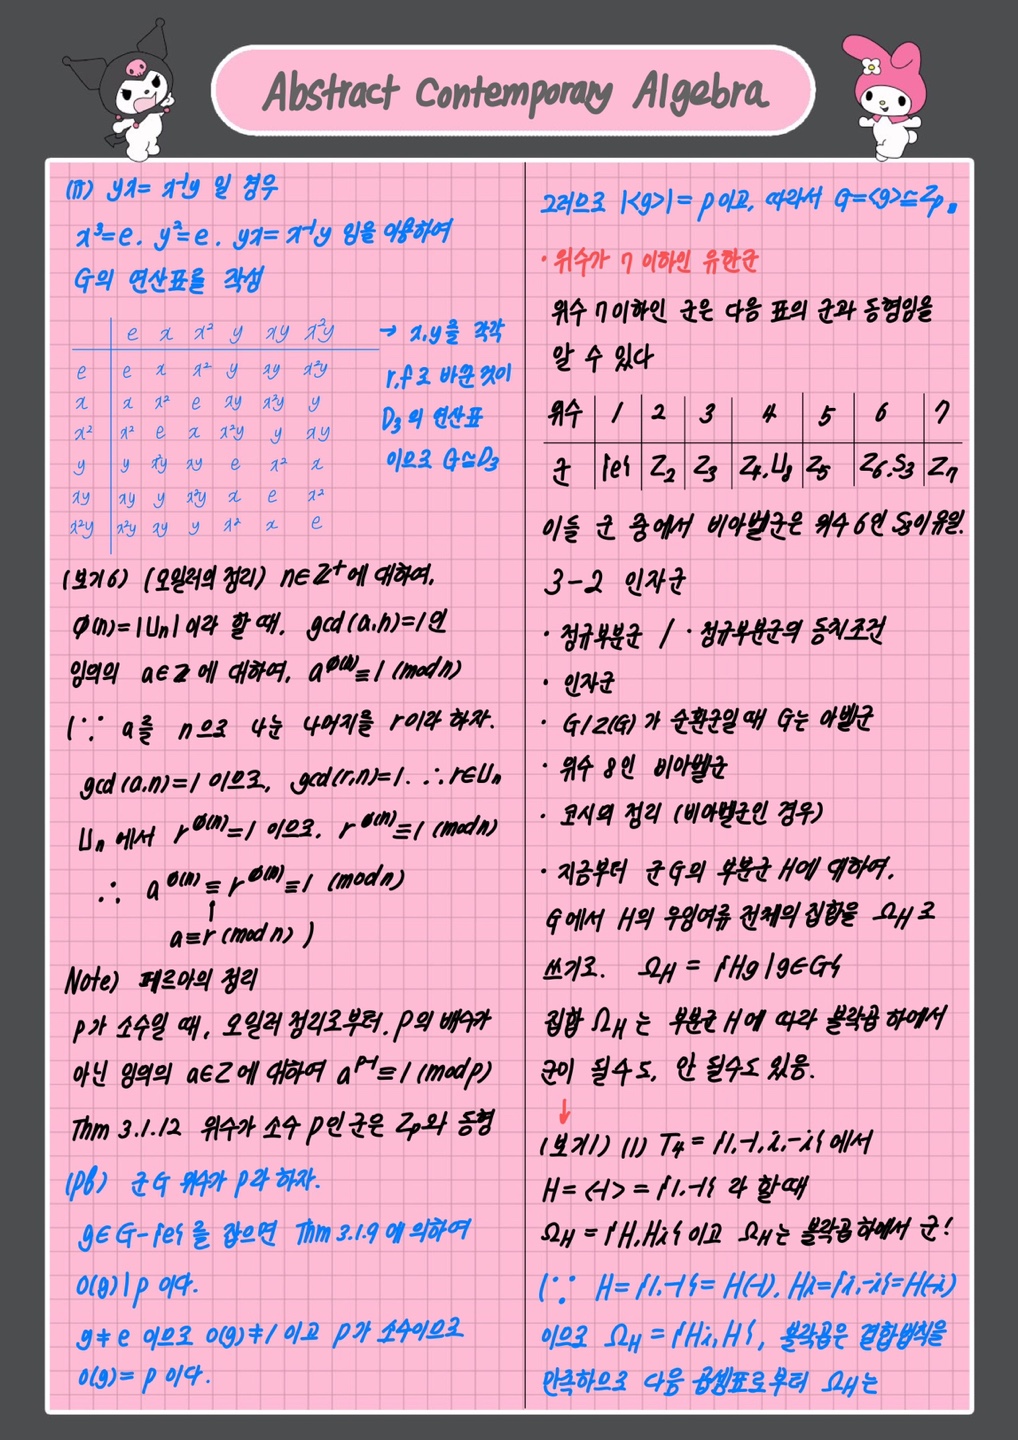 Abstract Contemporary Algebra
(ii) yx = x⁻¹y 일 경우
x³=e. y²=e. yx = x⁻¹y 임을 이용하여
G의 연산표를 작성
e x x² y xy x²y
e e x x² y xy x²y
x x x² e xy x²y y
x² x² e x x²y y xy
y y x²y xy e x² x
xy xy y x²y x e x²
x²y x²y xy y x² x e
→ x,y를 각각
r,f로 바꾼것이
D₃의 연산표
이으로 G≃D₃
(보기6) (오일러의 정리) n∈Z⁺에 대하여,
φ(n)=|Uₙ|이라 할 때, gcd(a,n)=1인
임의의 a∈Z에 대하여, a^φ(n)≡1 (mod n)
(∵ a를 n으로 나눈 나머지를 r이라 하자.
gcd(a,n)=1 이으로, gcd(r,n)=1. ∴ r∈Uₙ
Uₙ에서 r^φ(n)=1 이으로. r^φ(n)≡1 (mod n)
∴ a^φ(n) ≡ r^φ(n) ≡1 (mod n)
↑
a≡r (mod n) )
Note) 페르마의 정리
p가 소수일 때, 오일러 정리로부터. P의 배수가
아닌 임의의 a∈Z에 대하여 a^p-1≡1 (mod p)
Thm 3.1.12 위수가 소수 p인 군은 Zp와 동형
(pf) 군G 위수가 p라 하자.
g∈G-{e}를 잡으면 Thm 3.1.9에 의하여
o(g)|p 이다.
g≠e 이으로 o(g)≠1 이고 p가 소수이으로
o(g)= p 이다.
그러으로 |<g>|= p이고, 따라서 G=<g>≃Zp ∎
· 위수가 7 이하인 유한군
위수 7이하인 군은 다음 표의 군과 동형임을
알 수 있다
위수 1 2 3 4 5 6 7
군 {e} Z₂ Z₃ Z₄,U₈ Z₅ Z₆,S₃ Z₇
이들 군 중에서 비아벨군은 위수6인 S₃이 유일.
3-2 인자군
· 정규부분군 / · 정규부분군의 동치조건
· 인자군
· G/Z(G)가 순환군일 때 G는 아벨군
· 위수 8인 비아벨군
· 코시의 정리 (비아벨군인 경우)
· 지금부터 군G의 부분군 H에 대하여,
G에서 H의 우잉여류 전체의 집합을 Ω_H로
쓰기로. Ω_H = {Hg | g∈G}
집합 Ω_H는 부분군 H에 따라 블락곱 하에서
군이 될수도, 안 될수도 있음.
↓
(보기1) (1) T₄ = {1,-1,i,-i}에서
H = <-1> = {1,-1}라 할때
Ω_H = {H,Hi}이고 Ω_H는 블락곱 하에서 군!
(∵ H={1,-1}= H(-1), Hi={i,-i}=H(-i)
이으로 Ω_H = {Hi,H}, 블락곱은 결합법칙을
만족하으로 다음 곱셈표로부터 Ω_H는